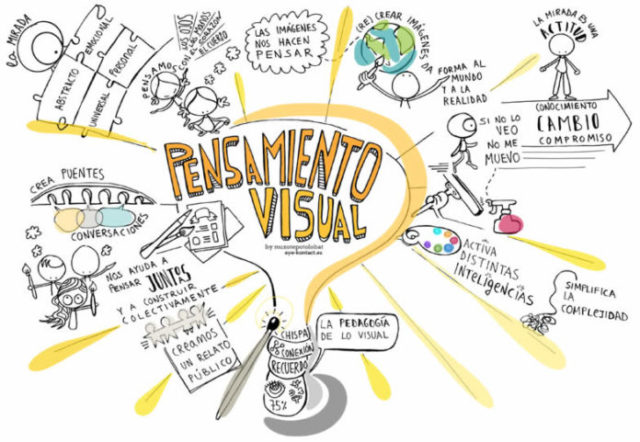 LA MIRADA
ABSTRACTO
EMOCIONAL
UNIVERSAL
PERSONAL
PENSAMOS
CON LOS OJOS
CON LAS MANOS
CON EL CUERPO
LAS IMÁGENES
NOS HACEN
PENSAR
(RE) CREAR IMÁGENES DA
FORMA AL
MUNDO
Y A LA
REALIDAD
LA MIRADA ES UNA
ACTITUD
CONOCIMIENTO
CAMBIO
COMPROMISO
SI NO LO
VEO
NO ME
MUEVO
PENSAMIENTO
VISUAL
eye-kontact.es
CREA PUENTES
CONVERSACIONES
NOS AYUDA A
PENSAR JUNTAS
Y A CONSTRUIR
COLECTIVAMENTE
CREAMOS
UN RELATO
PÚBLICO
ACTIVA
DISTINTAS
INTELIGENCIAS
SIMPLIFICA
LA
COMPLEJIDAD
CHISPA
CONEXIÓN
RECUERDO
75%
LA PEDAGOGÍA
DE LO VISUAL